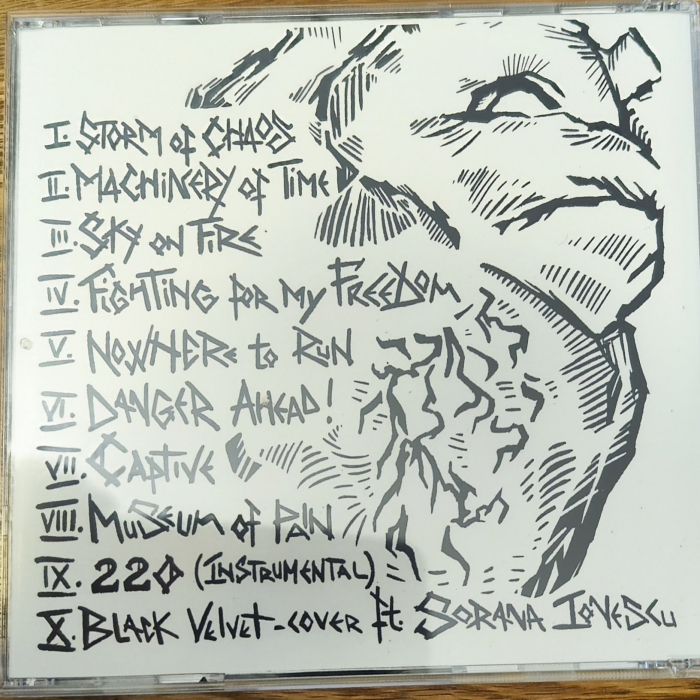 I. STORM of CHAOS
II. MACHINERY of TIME
III. SKY ON FIRE
IV. FIGHTING FOR MY FREEDOM
V. NOWHERE to RUN
VI. DANGER AHEAD!
VII. CAPTIVE
VIII. MUSEUM OF PAIN
IX. 220 (INSTRUMENTAL)
X. BLACK VELVET-COVER ft. SORANA IONESCU